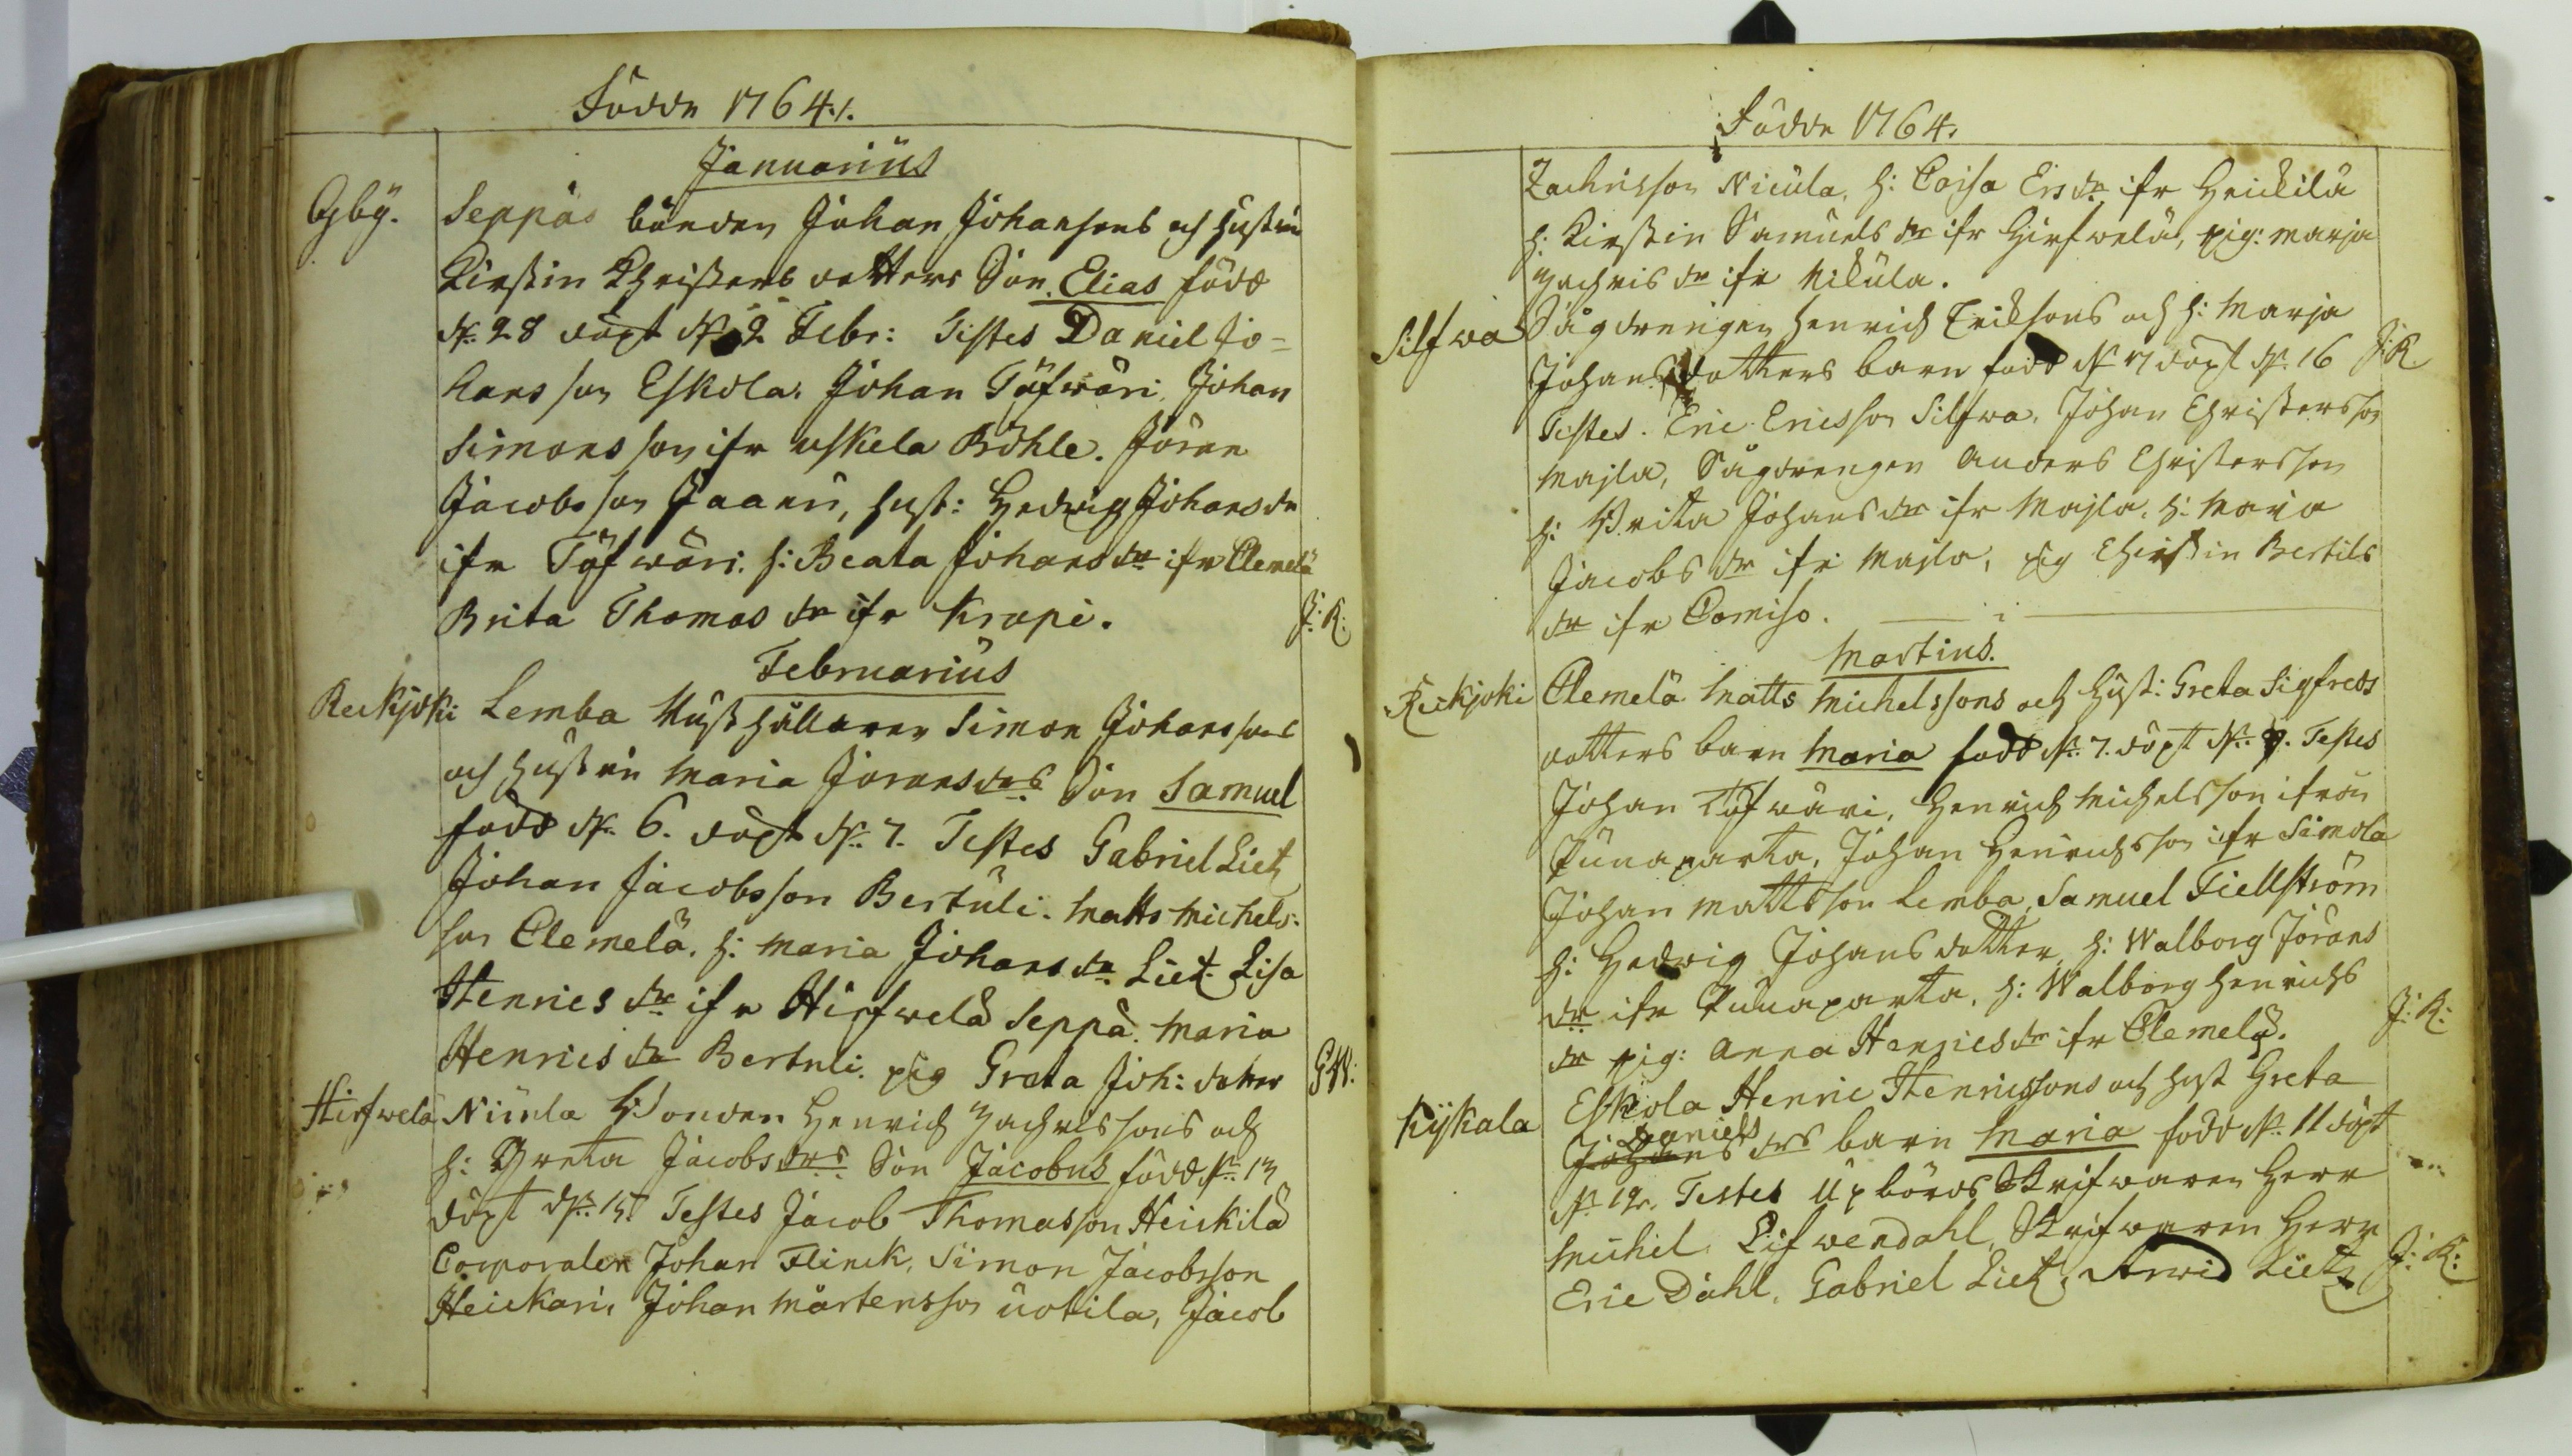 Födde 1764./.
Januarius
Gby. Seppäs bonden Johan Johansons och hustru
Kirstin Christers dotters Son Elias född
d. 28 döpt d. 2 Febr: Testes Daniel Jo=
hans son Eskola. Johan Töfwäri, Johan
Simons son ifr uskela Böhle. Jöran
Jacobs son Jaani, hust: Hedwig Johans dr
ifr Töfwäri. h: Beata Johans dr ifr Clemelä
Brita Thomas dr ifr Krapi. J: K:
Februarius
Reckjoki Lemba Husshållaren Simon Johanssons
och hustru Maria Jörans drs Son Samuel
född d. 6. döpt d. 7. Testes Gabriel Lietz
Johan Jacobsson Bertuli. Matts Michels-
son Clemelä. h: Maria Johans dr Liet. Lisa
Henrics dr ifr Hirfwelä Seppä. Maria
Henrics dr Bertuli. pig Greta Joh: dotter GW:
Hirfwelä Nicula Bonden Henrich Zachrissons och
h: Greta Jacobs drs Son Jacobus född d. 13
döpt d. 15. Testes Jacob Thomasson Heickilä
Corporalen Johan Flinck, Simon Jacobsson
Heickari, Johan Mårtensson uotila, Jacob
Födde 1764.
Zachrisson Nicula. h: Caisa Ers dr ifr Heickilä
h: Kirstin Samuels dr ifr Hirfwelä, pig: Marja
Zachris dr ifr Nikula.
Silfwa Sågdrengen Henrich Eriksons och h: Marja
Johans dotters barn född d. 7 döpt d. 16 J: K
Testes. Eric Ericsson Silfwa, Johan Christersson
Majla, Sågdrengen Anders Christersson
h: Brita Johans dr ifr Majla. h: Maria
Jacobs dr ifr Majla, pig Christin Bertils
dr ifr Comiso.
Martius.
Reckjoki Clemelä Matts Michelssons och hust: Greta Sigfreds
dotters barn Maria född d. 7. döpt d. 9. Testes
Johan Töfwäri, Henrich Michelsson ifrån
Punaparta, Johan Henrichsson ifr Simola
Johan Mattsson Lemba, Samuel Fiellström
h: Hedwig Johans dotter, h: Walborg Jörans
dr ifr Punaparta, h: Walborg Henrichs
dr pig: Anna Henrics dr ifr Clemelä. J: K:
Kÿkala Eskola Henric Henricssons och hust Greta
Daniels
Johans drs barn Maria född d. 11 döpt
d. 12. Testes Upbörds Skrifwaren Herr
Michel Lifwendahl, Skrifwaren Herr
Eric Dahl, Gabriel Lietz, Arvid Lietz J: K: